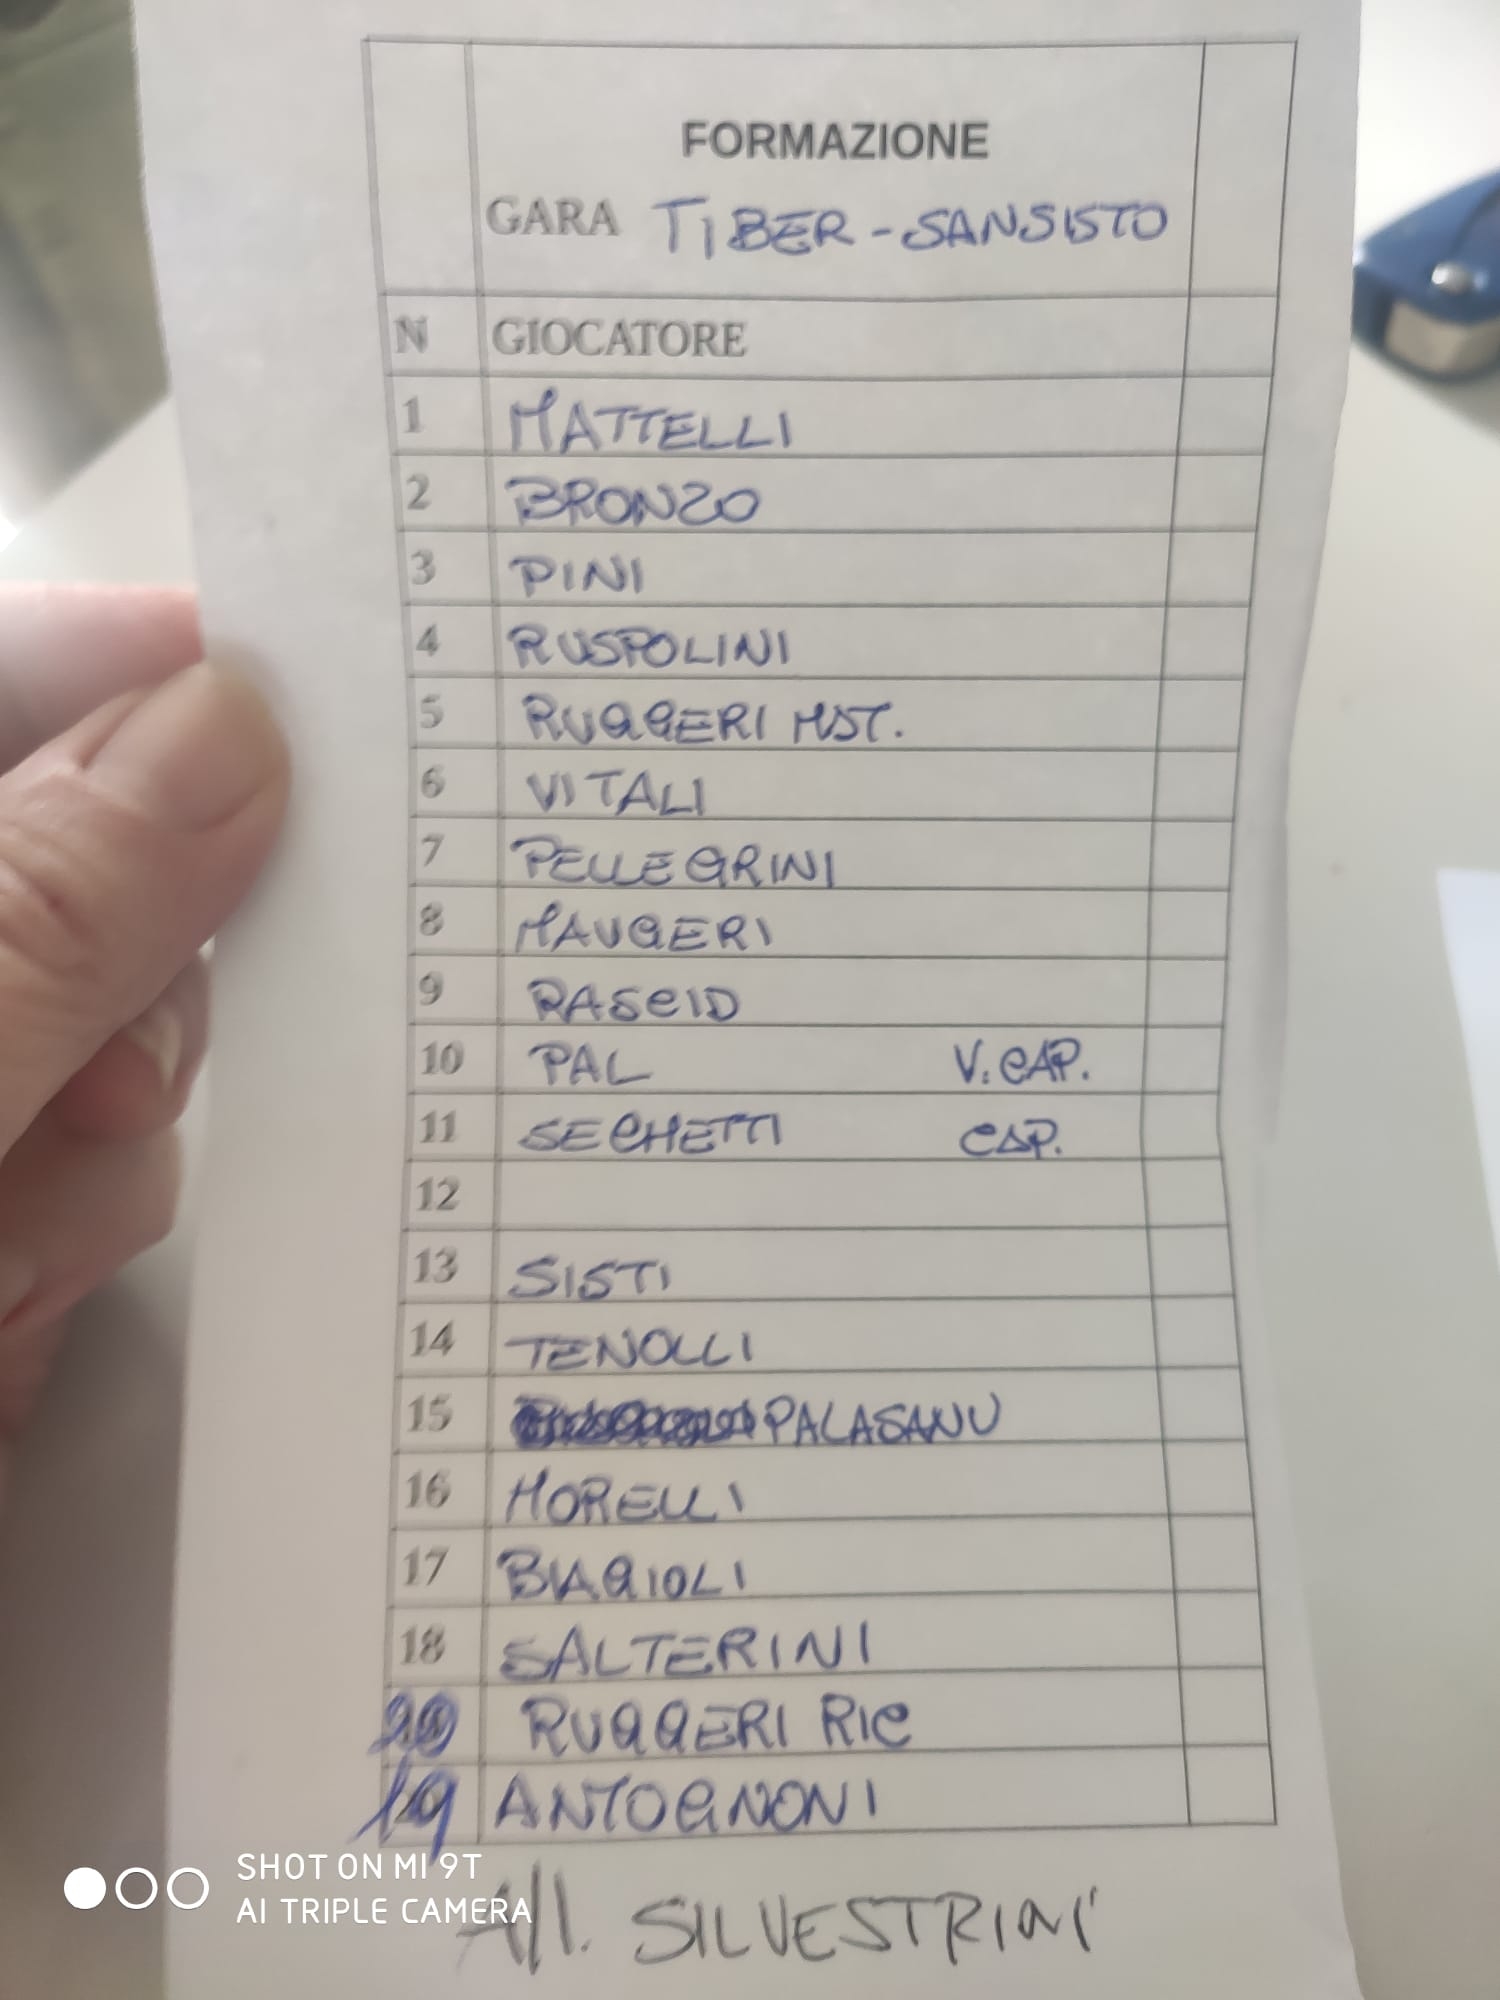 FORMAZIONE
GARA TIBER - SANSISTO
N GIOCATORE
1 MATTELLI
2 BRONZO
3 PINI
4 RUSPOLINI
5 RUGGERI MST.
6 VITALI
7 PELLEGRINI
8 MAUGERI
9 RASCID
10 PAL V. CAP.
11 SECHETTI CAP.
12
13 SISTI
14 TENOLLI
15 PALASANU
16 MORELLI
17 BIAGIOLI
18 SALTERINI
20 RUGGERI RIC
19 ANTOGNONI
SHOT ON MI 9T
AI TRIPLE CAMERA
All. SILVESTRINI